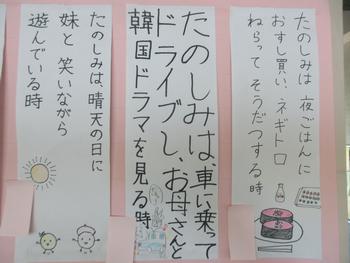 たのしみは 夜ごはんに
おすし買い、ネギトロ
ねらって そうだつする時
たのしみは、車に乗って
ドライブし、お母さんと
韓国ドラマを見る時
たのしみは、晴天の日に
妹と 笑いながら
遊んでいる時